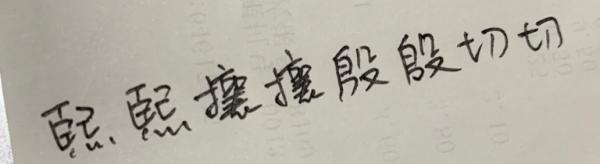 熙熙攘攘殷殷切切